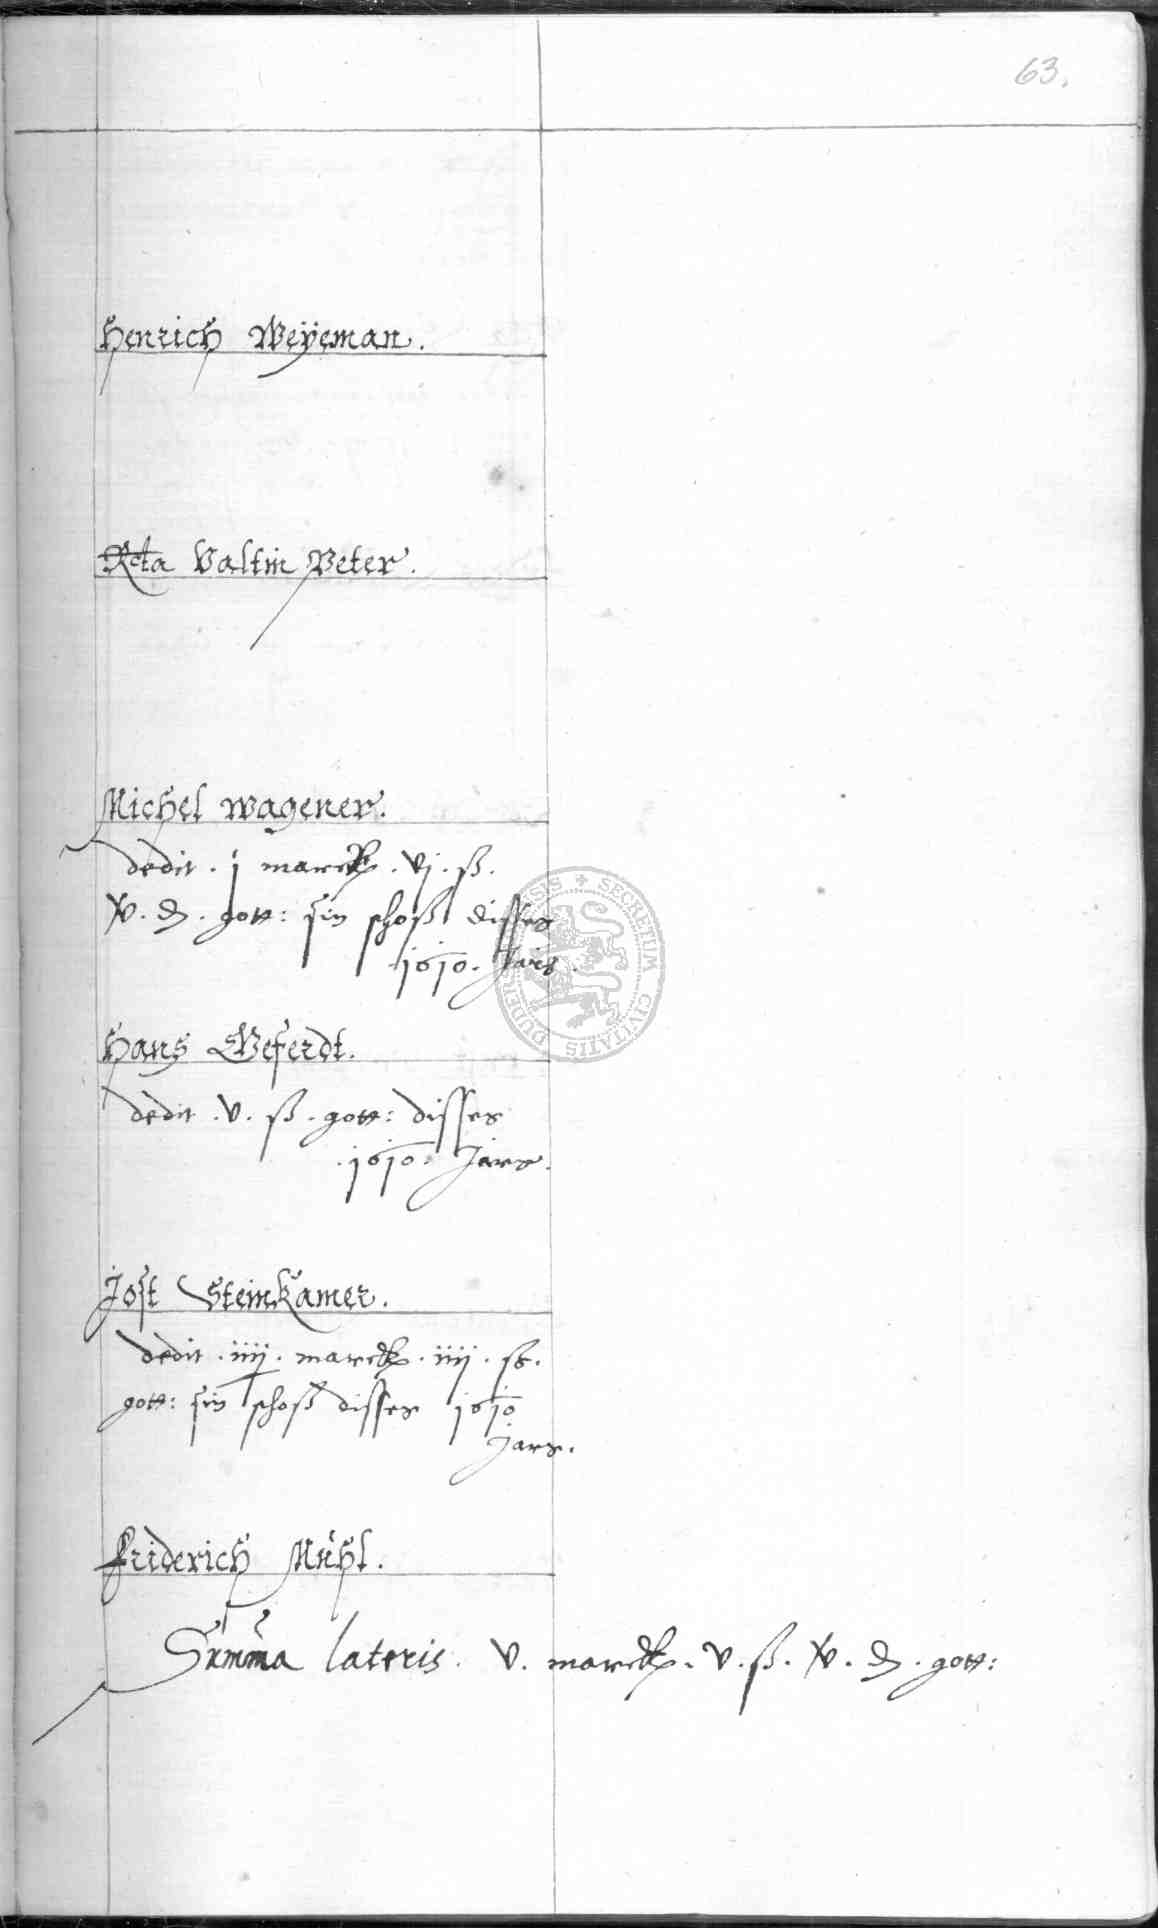 63.
Henrich Weÿeman.
Rcta Valtin Peter.
Michel wagener.
dedit . j marck . vj . ß .
v . d . gott: sin schoß disses
1610. Jars .
Hans Geferdt.
dedit . v . ß . gott: disses
.1610. Jars.
Jost Steinkamer.
dedit . iiij . marck . iiij . ß .
gott: sin schoß disses 1610
Jars .
friderich Mühl.
Summa lateris . v . marck . v . ß . v . d . gott:
SECRETUM CIVITATIS